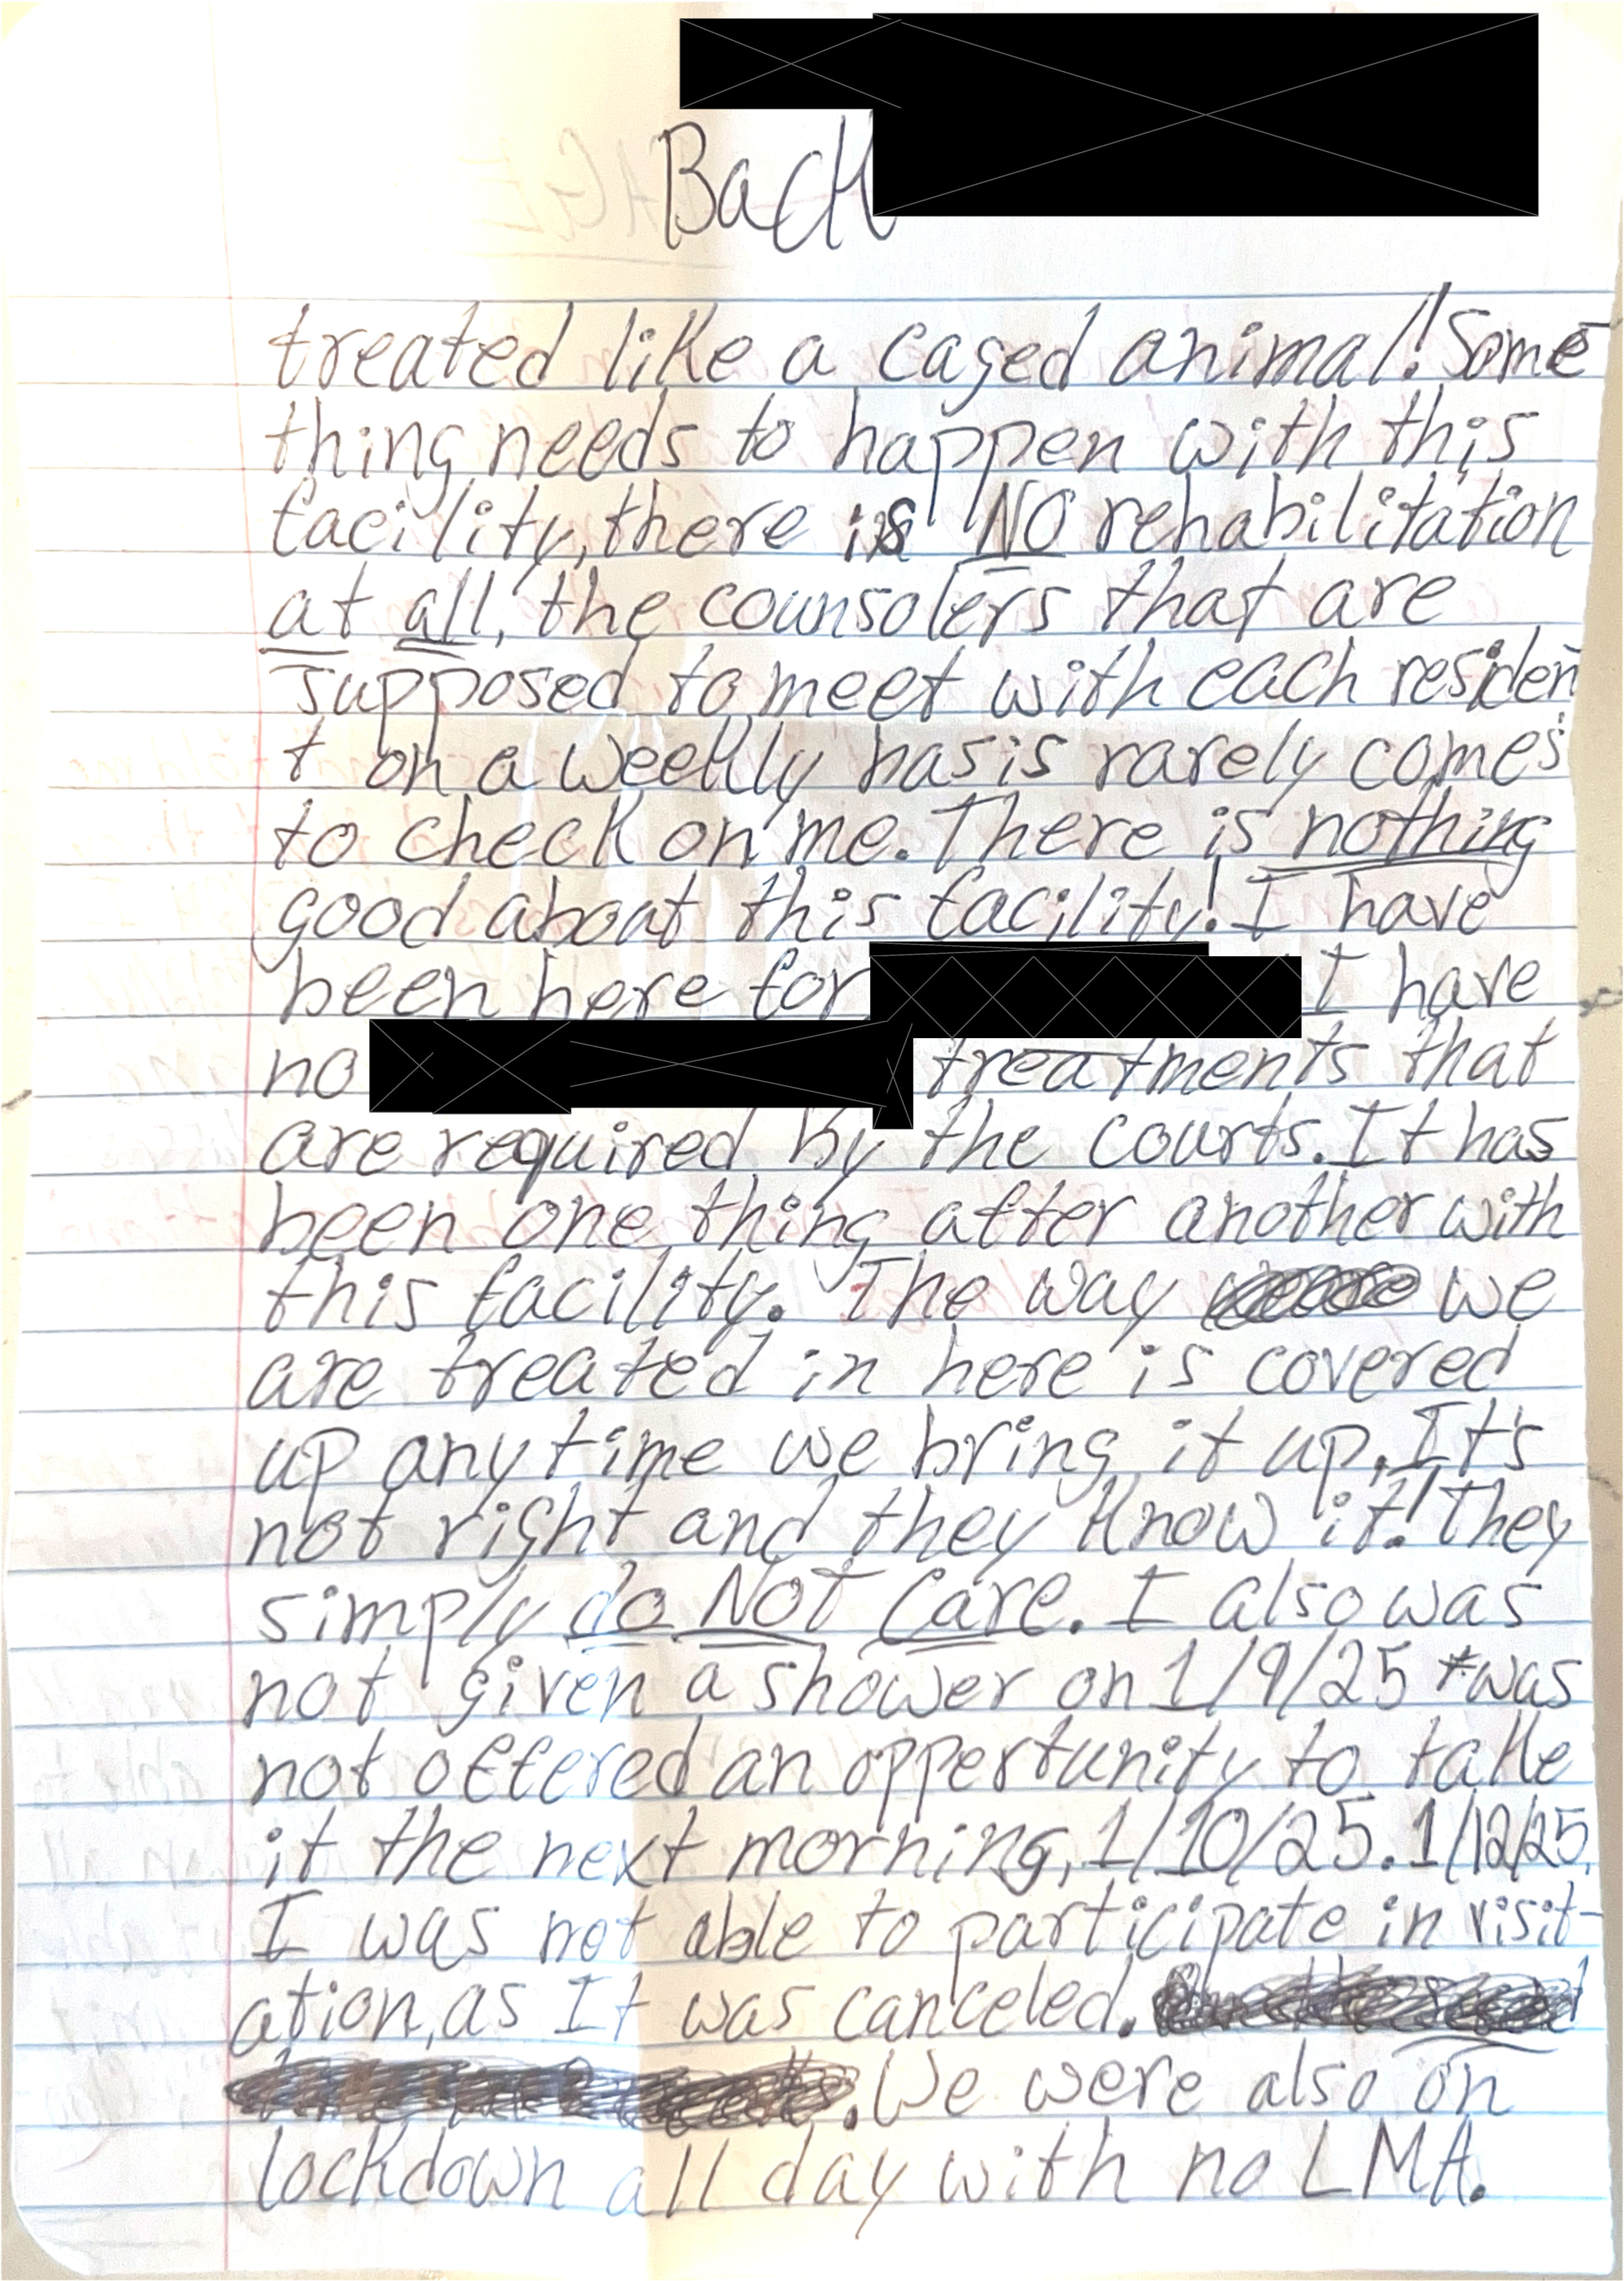 Back
treated like a caged animal! Some
thing needs to happen with this
facility, there is NO rehabilitation
at all, the counsolers that are
supposed to meet with each residen
t on a weekly basis rarely comes
to check on me. There is nothing
good about this facility! I have
been here for I have
no treatments that
are required by the courts. It has
been one thing after another with
this facility. The way we
are treated in here is covered
up anytime we bring it up. It's
not right and they know it! They
simply do NOT Care. I also was
not given a shower on 1/9/25 *was
not offered an oppertunity to take
it the next morning, 1/10/25. 1/12/25,
I was not able to participate in visit-
ation, as It was canceled.
. We were also on
lockdown all day with no LMA.